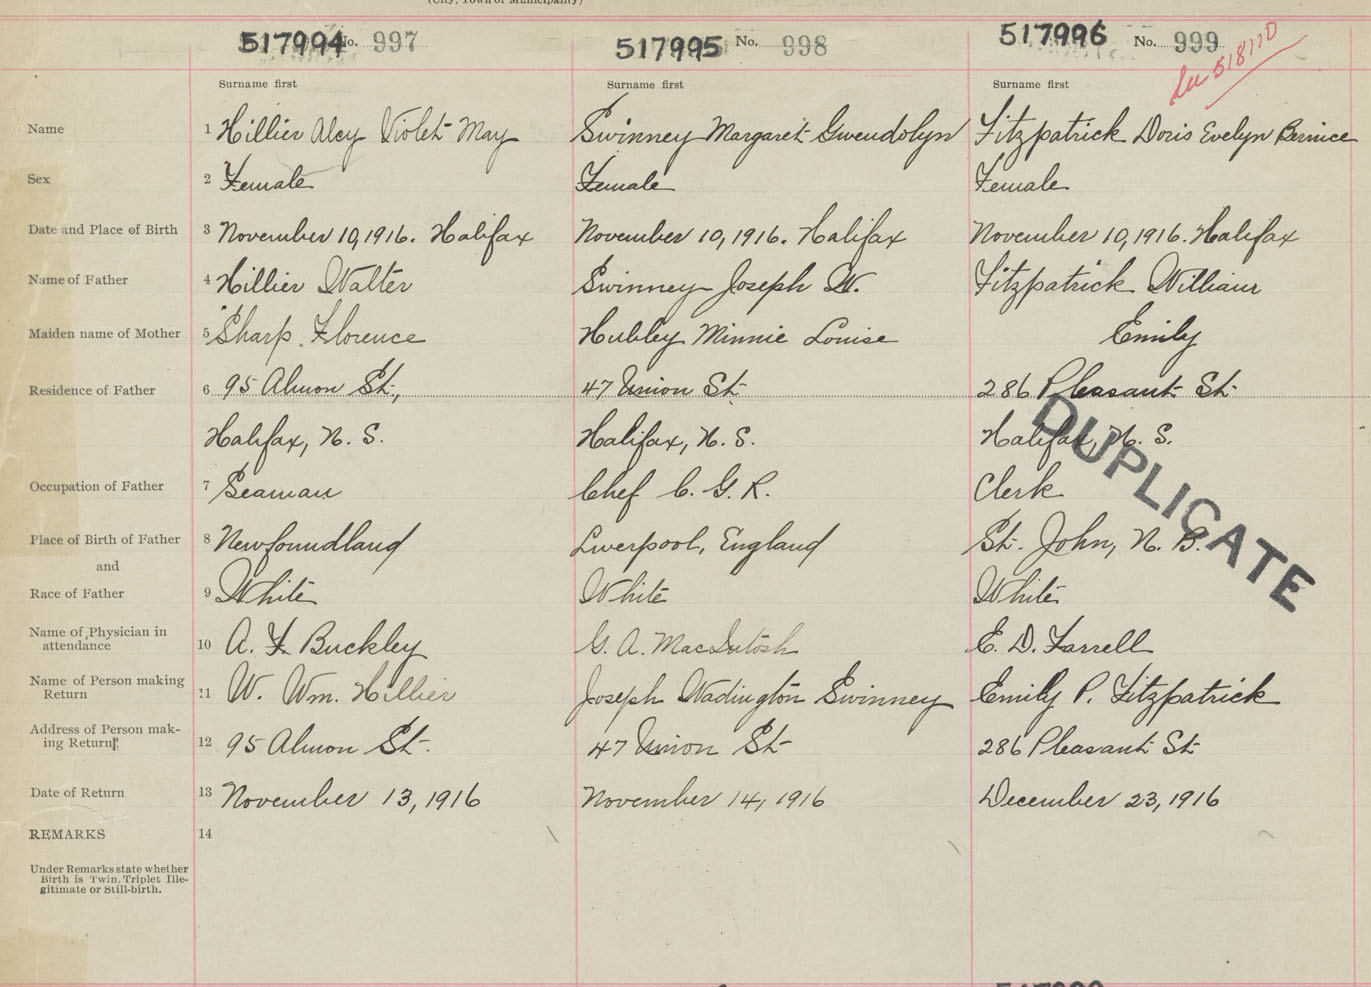 (City, Town or Municipality)
517994 No. 997 517995 No. 998 517996 No. 999 See 518110
Surname first Surname first Surname first
Name 1 Hillier Alcy Violet May Swinney Margaret Gwendolyn Fitzpatrick Doris Evelyn Bernice
Sex 2 Female Female Female
Date and Place of Birth 3 November 10, 1916. Halifax November 10, 1916. Halifax November 10, 1916. Halifax
Name of Father 4 Hillier Walter Swinney Joseph W. Fitzpatrick William
Maiden name of Mother 5 Sharp, Florence Hubley Minnie Louise Emily
Residence of Father 6 95 Almon St., 47 Union St. 286 Pleasant St.
Halifax, N. S. Halifax, N. S. Halifax, N. S.
DUPLICATE
Occupation of Father 7 Seaman Chef C. G. R. Clerk
Place of Birth of Father 8 Newfoundland Liverpool, England St. John, N. B.
and
Race of Father 9 White White White
Name of Physician in
attendance 10 A. F. Buckley G. A. MacIntosh E. D. Farrell
Name of Person making
Return 11 W. Wm. Hillier Joseph Wadington Swinney Emily P. Fitzpatrick
Address of Person mak-
ing Return 12 95 Almon St. 47 Union St 286 Pleasant St
Date of Return 13 November 13, 1916 November 14, 1916 December 23, 1916
REMARKS 14
Under Remarks state whether
Birth is Twin, Triplet Ille-
gitimate or Still-birth.